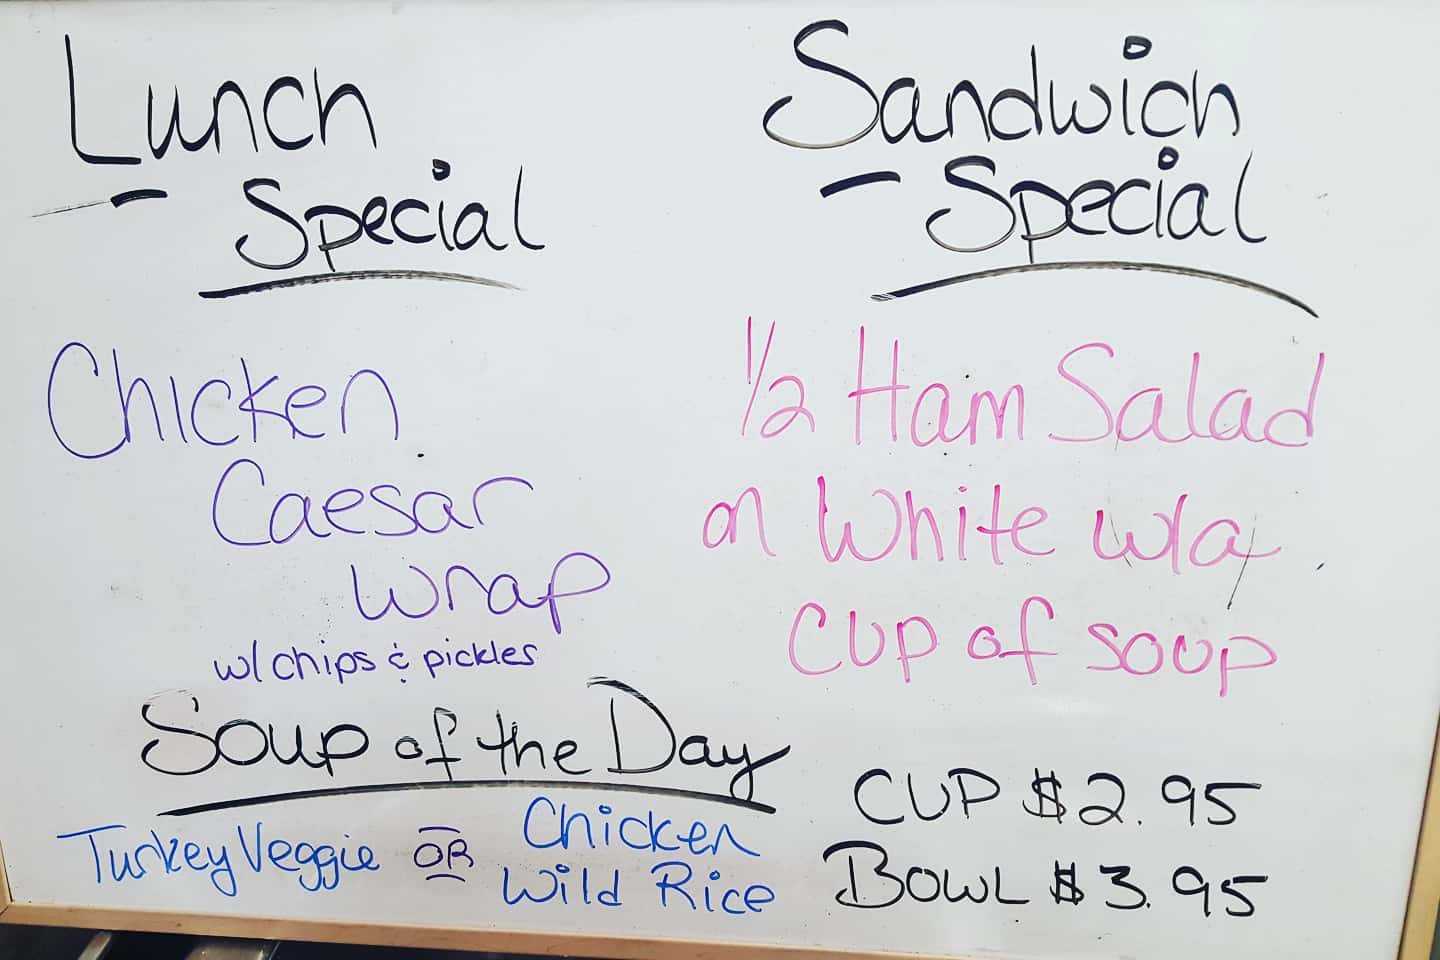 Lunch
- Special
Chicken
Caesar
Wrap
w/ chips & pickles
Sandwich
- Special
1/2 Ham Salad
on White w/a
CUP of soup
Soup of the Day
Turkey Veggie OR Chicken
Wild Rice
CUP $2.95
BOWL $3.95